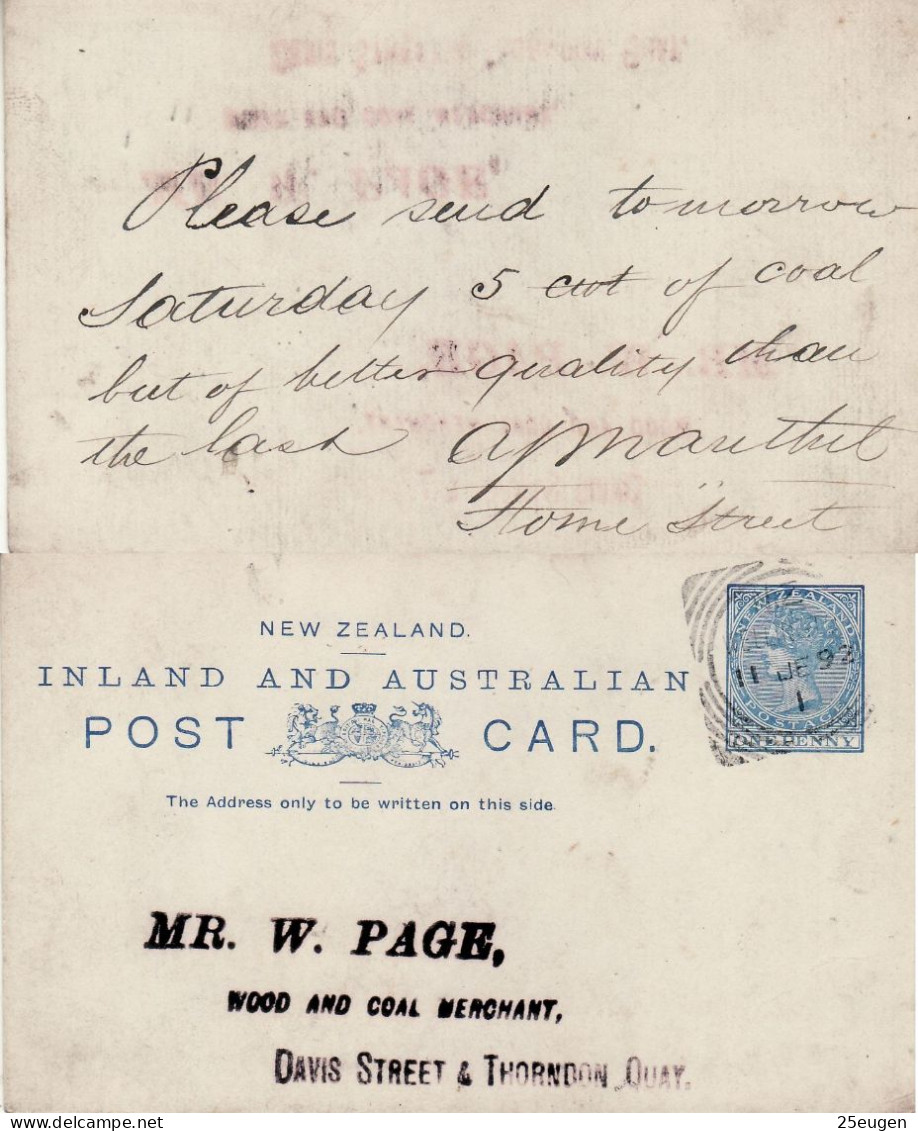 Please send tomorrow
Saturday 5 cwt of coal
but of better quality than
the last
Home Street
NEW ZEALAND.
INLAND AND AUSTRALIAN
POST CARD.
The Address only to be written on this side.
NEW ZEALAND
POSTAGE
ONE PENNY
11 JE 92
1
MR. W. PAGE,
WOOD AND COAL MERCHANT,
DAVIS STREET & THORNDON QUAY.
25eugen